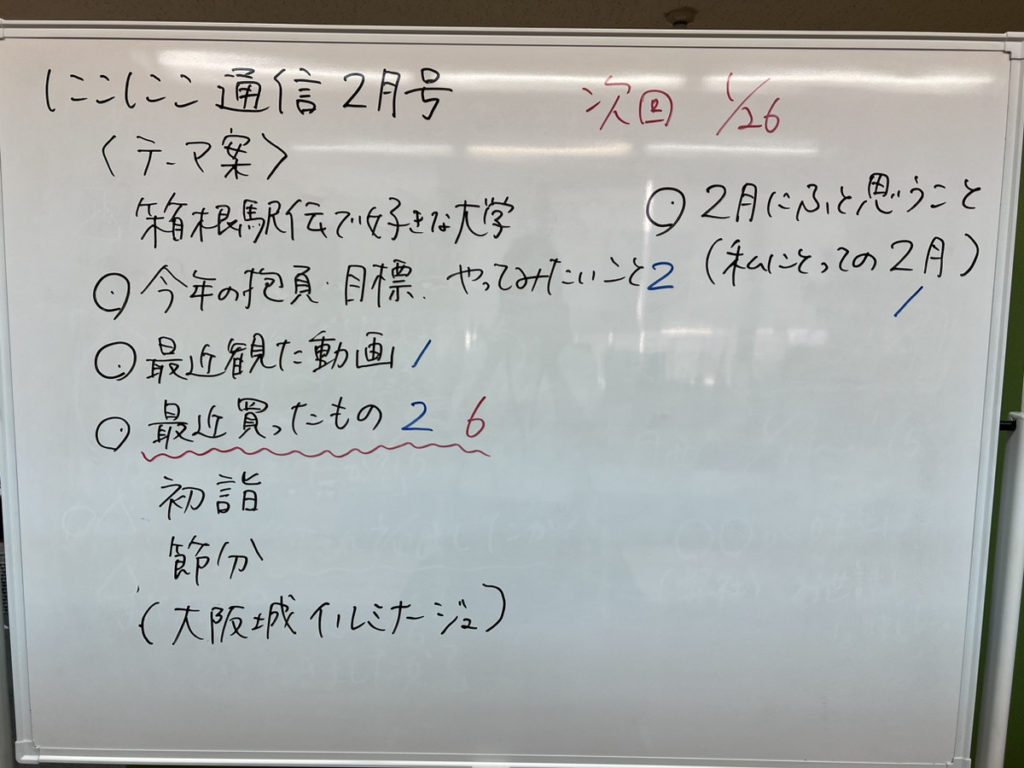 にこにこ通信 2月号
次回 1/26
〈テーマ案〉
箱根駅伝で好きな大学
○ 今年の抱負・目標. やってみたいこと 2
○ 最近観た動画 1
○ 最近買ったもの 2 6
初詣
節分
(大阪城イルミナージュ)
○ 2月にふと思うこと
(私にとっての2月)
1